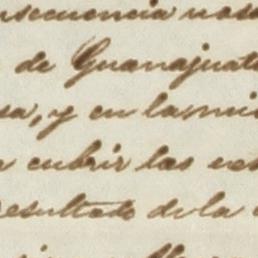 nsecuencia
de Guanajuat
sa, y en la mi
cubrir las
resultado de la